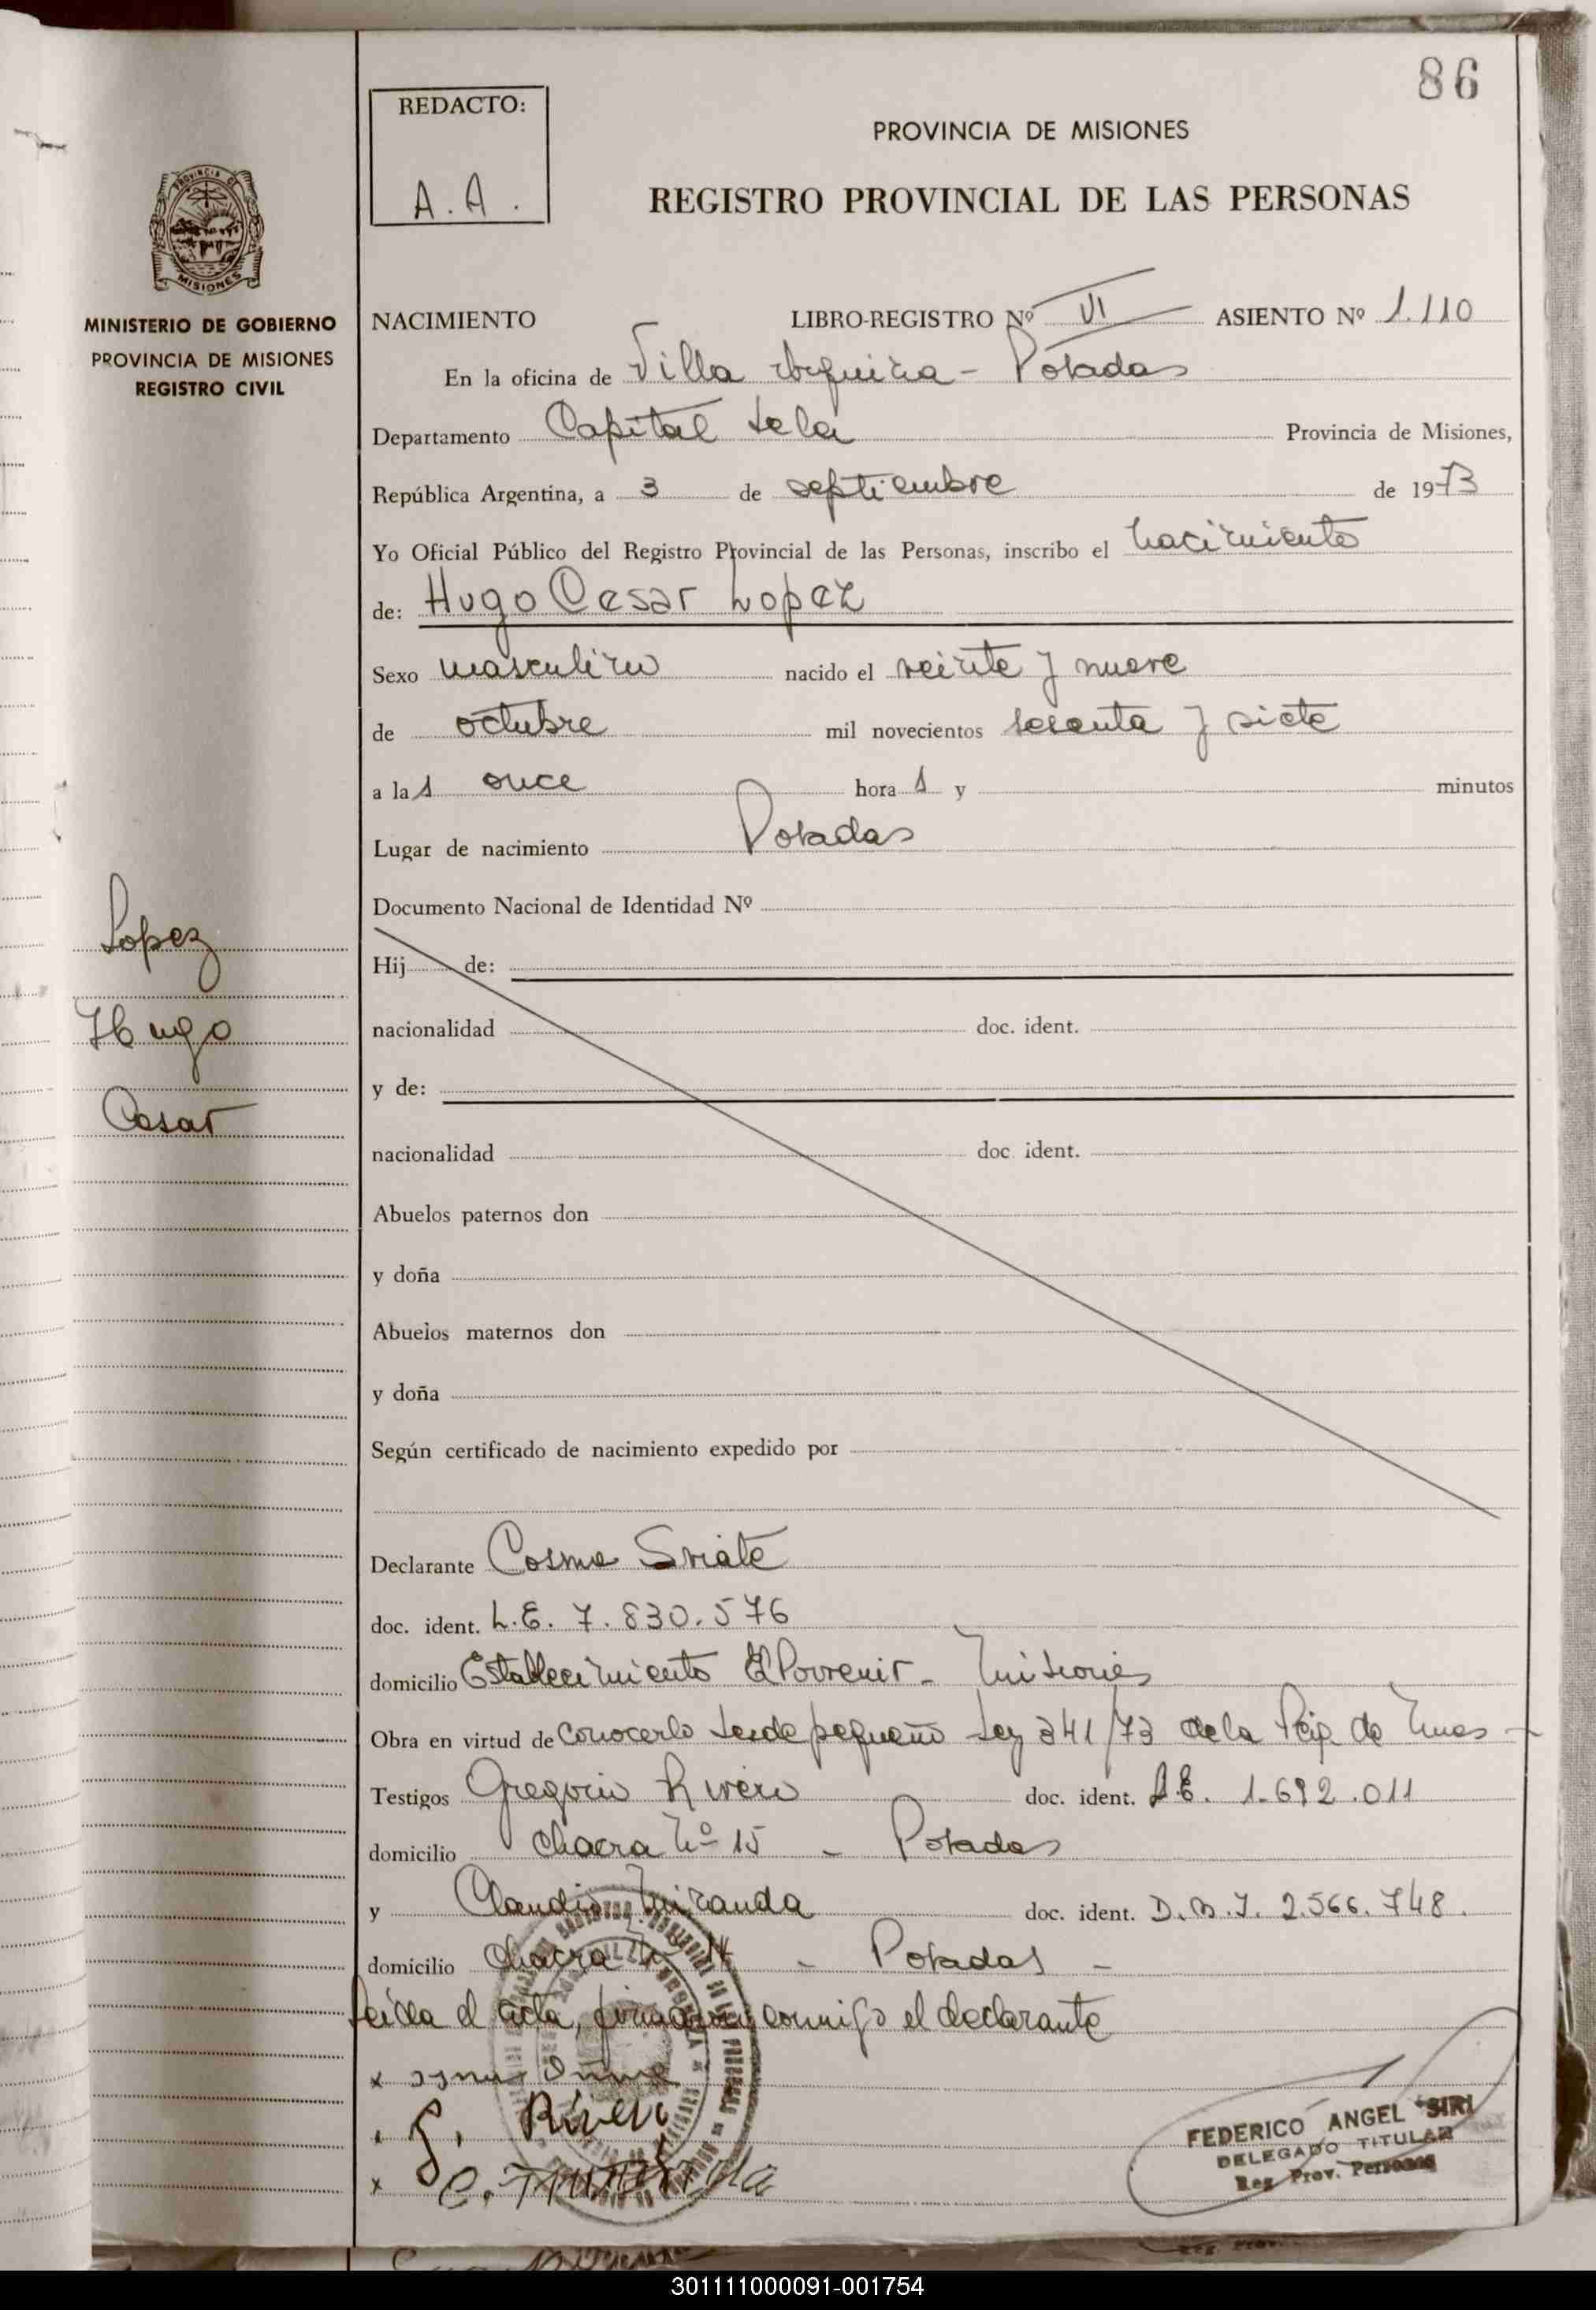 86
REDACTO:
A.A.
PROVINCIA DE MISIONES
REGISTRO PROVINCIAL DE LAS PERSONAS
PROVINCIA DE
MISIONES
MINISTERIO DE GOBIERNO
PROVINCIA DE MISIONES
REGISTRO CIVIL
NACIMIENTO LIBRO-REGISTRO Nº VI ASIENTO Nº 1.110
En la oficina de Villa Urquiza - Posadas
Departamento Capital
Provincia de Misiones,
República Argentina, a 3 de septiembre de 1973
Yo Oficial Público del Registro Provincial de las Personas, inscribo el nacimiento
de: Hugo Cesar Lopez
Sexo masculino nacido el veinte y nueve
de octubre mil novecientos sesenta y siete
a las once horas y minutos
Lugar de nacimiento Posadas
Documento Nacional de Identidad Nº
Lopez
Hugo
Cesar
Hij de:
nacionalidad doc. ident.
y de:
nacionalidad doc. ident.
Abuelos paternos don
y doña
Abuelos maternos don
y doña
Según certificado de nacimiento expedido por
Declarante Cosme
doc. ident. L.E. 7.830.576
domicilio Establecimiento El Porvenir - Misiones
Obra en virtud de conocerlo desde pequeño Ley 341/73 de la
Testigos Gregorio Rivero doc. ident. L.E. 1.692.011
domicilio Chacra Nº 15 - Posadas
y Claudio Miranda doc. ident. D.N.I. 2.566.748.
domicilio Chacra - Posadas -
Leida el acta, firman conmigo el declarante
x
G. Rivero
x C. Miranda
FEDERICO ANGEL SIRI
DELEGADO TITULAR
Reg. Prov. Personas
301111000091-001754